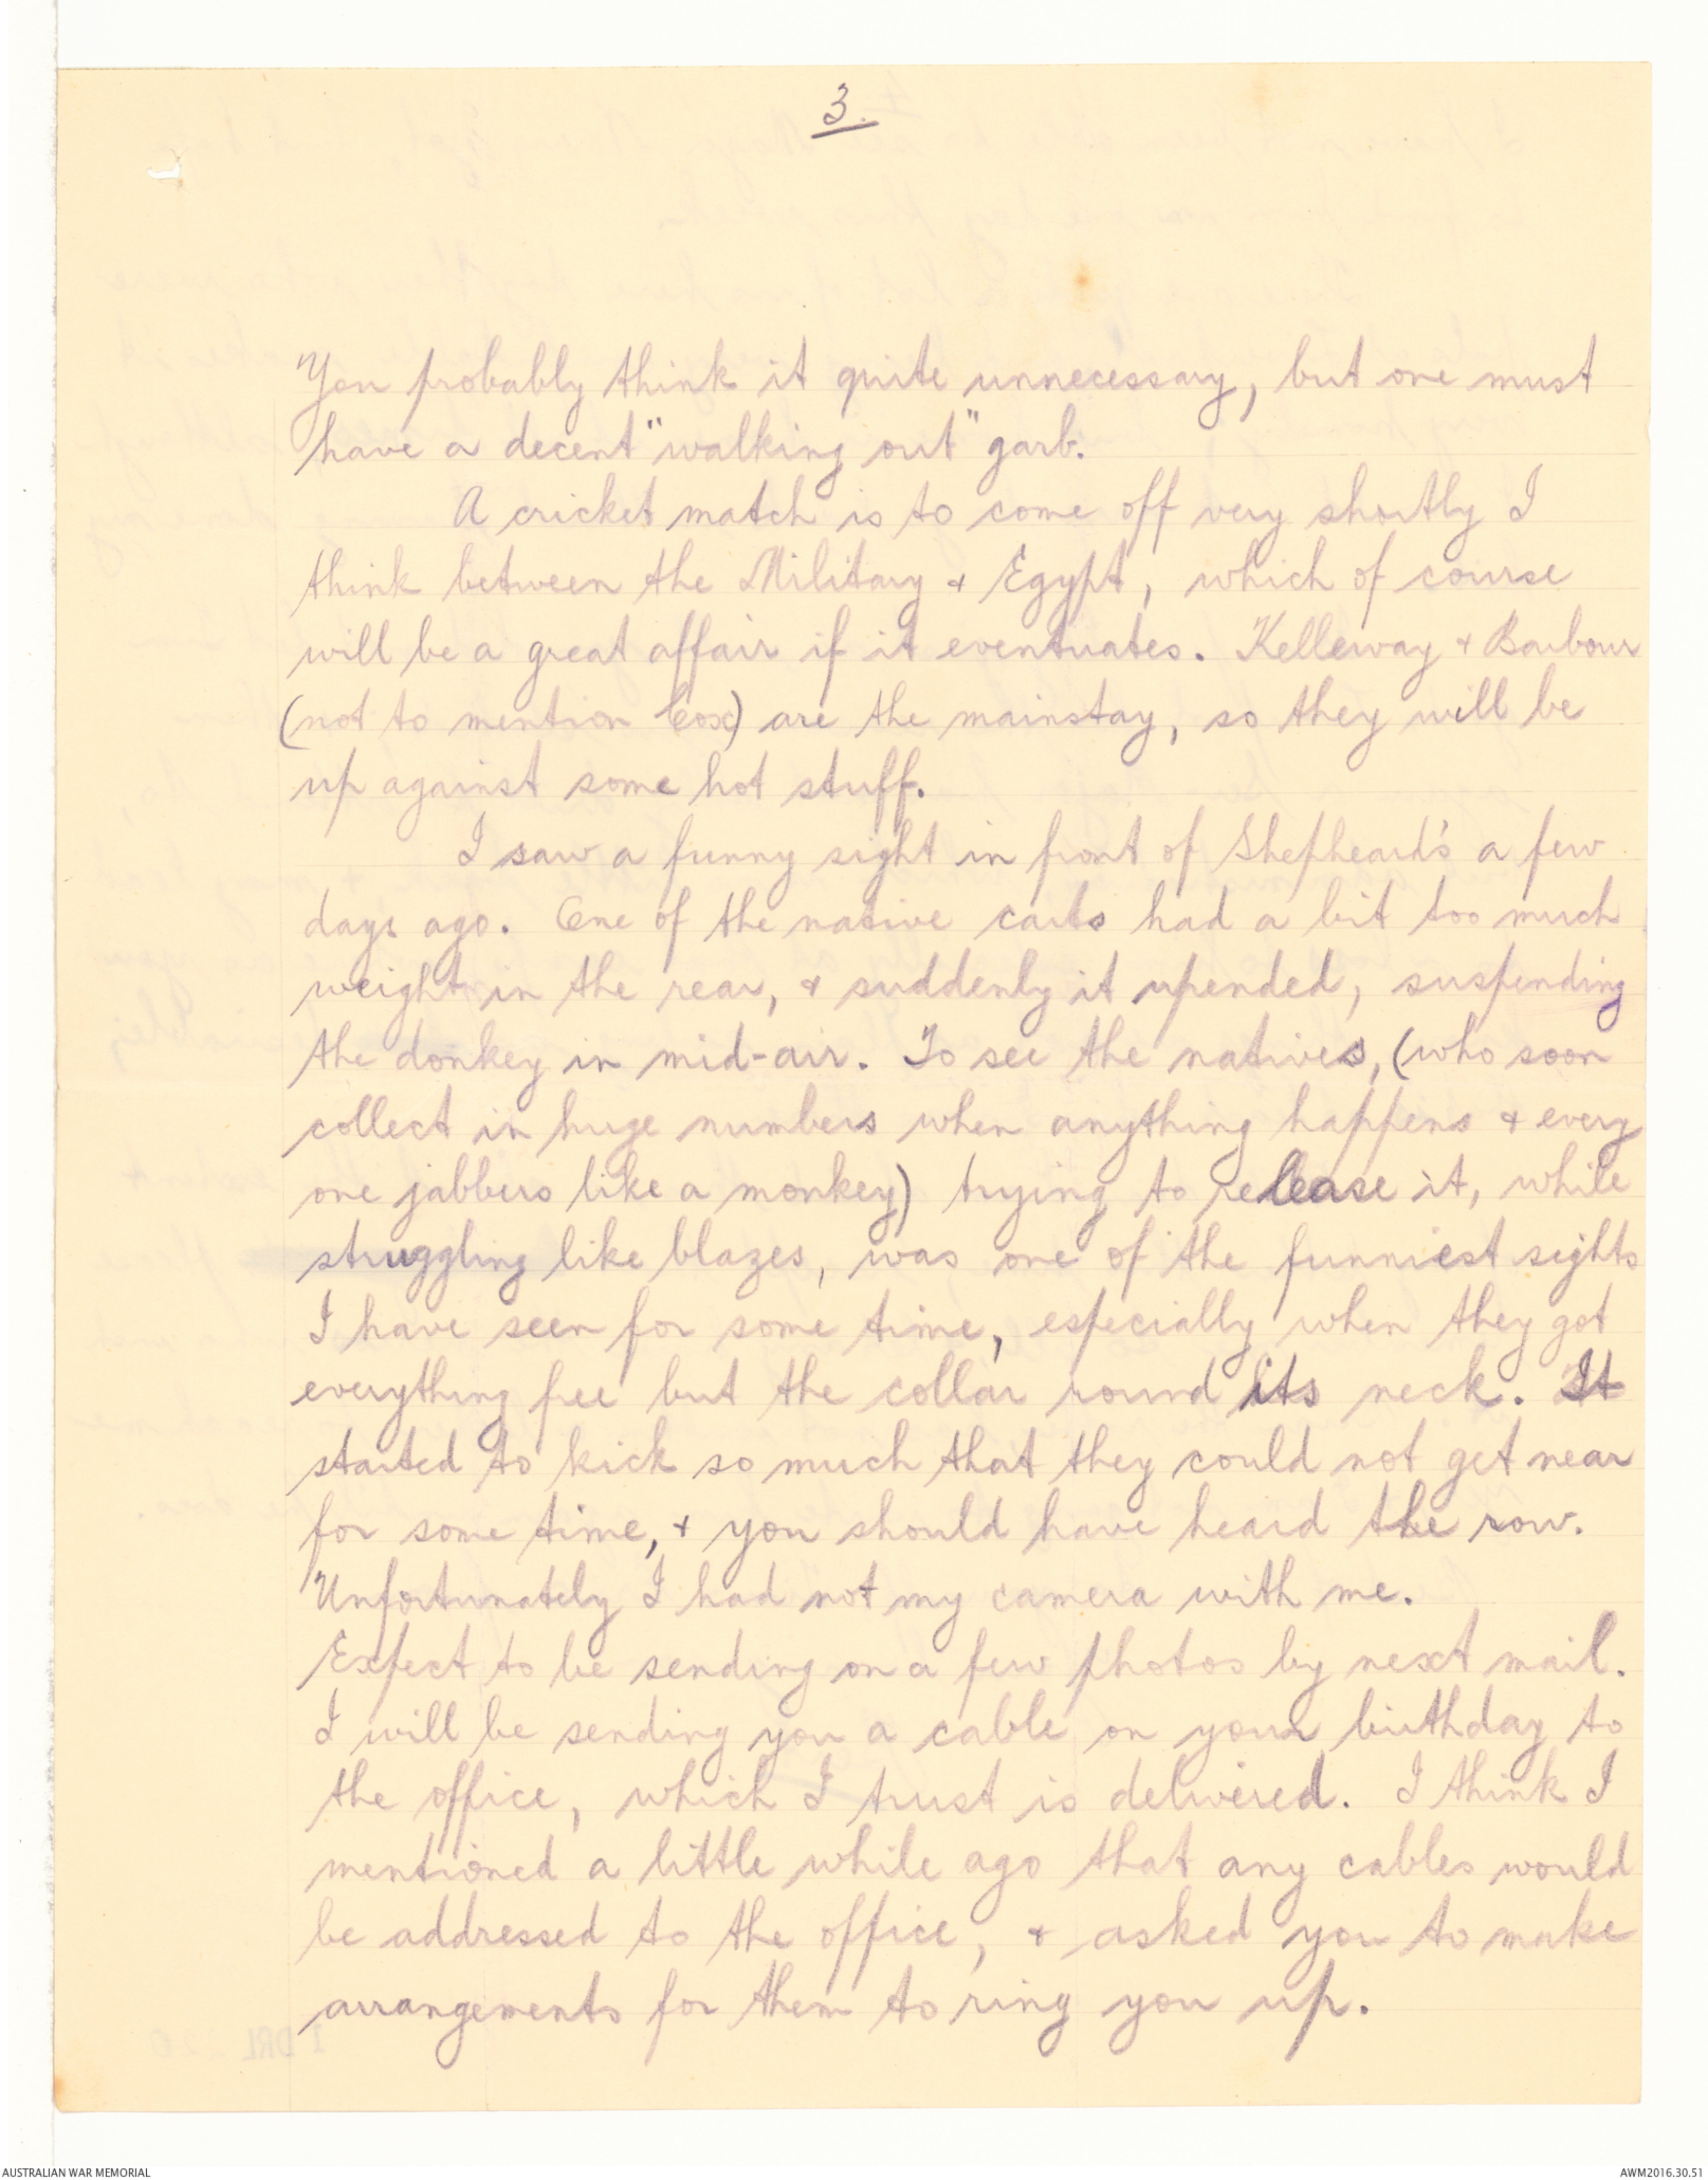 3.
You probably think it quite unnecessary, but one must
have a decent "walking out" garb.
A cricket match is to come off very shortly I
think between the Military & Egypt, which of course
will be a great affair if it eventuates. Kelleway & Barbour
(not to mention Cox) are the mainstay, so they will be
up against some hot stuff.
I saw a funny sight in front of Shepheard's a few
days ago. One of the native carts had a bit too much
weight in the rear, & suddenly it upended, suspending
the donkey in mid-air. To see the natives, (who soon
collect in huge numbers when anything happens & every
one jabbers like a monkey) trying to release it, while
struggling like blazes, was one of the funniest sights
I have seen for some time, especially when they got
everything free but the collar round its neck. It
started to kick so much that they could not get near
for some time, & you should have heard the row.
Unfortunately I had not my camera with me.
Expect to be sending on a few photos by next mail.
I will be sending you a cable on your birthday to
the office, which I trust is delivered. I think I
mentioned a little while ago that any cables would
be addressed to the office, & asked you to make
arrangements for them to ring you up.
AUSTRALIAN WAR MEMORIAL
AWM2016.30.51